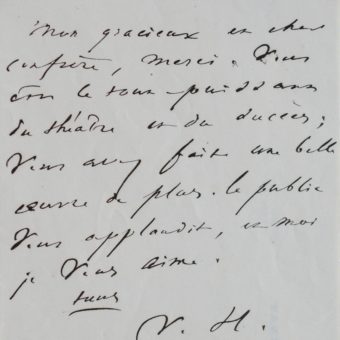 mon gracieux et cher
confrère, merci. Vous
êtes le tout-puissant
du théâtre et du succès;
Vous avez faite une belle
œuvre de plus. le public
Vous applaudit, et moi
je Vous aime.
tuus
V. H.